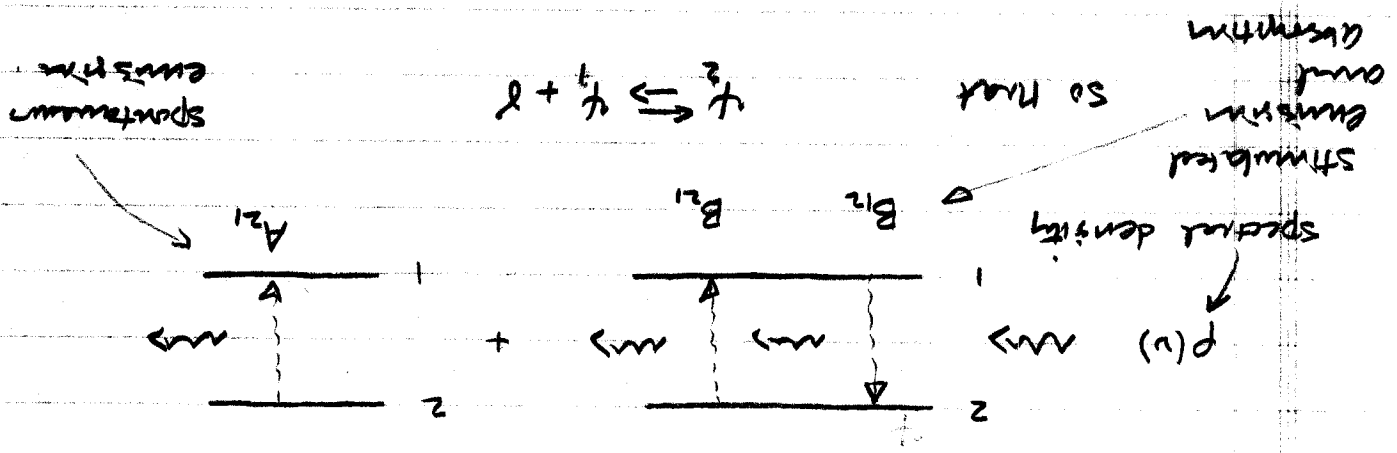 2 2
ρ(ν) +
1 1
spectral density
B₁₂ B₂₁ A₂₁
stimulated
emission
and
absorption
So that ψ₂ ⇌ ψ₁ + γ
spontaneous
emission.